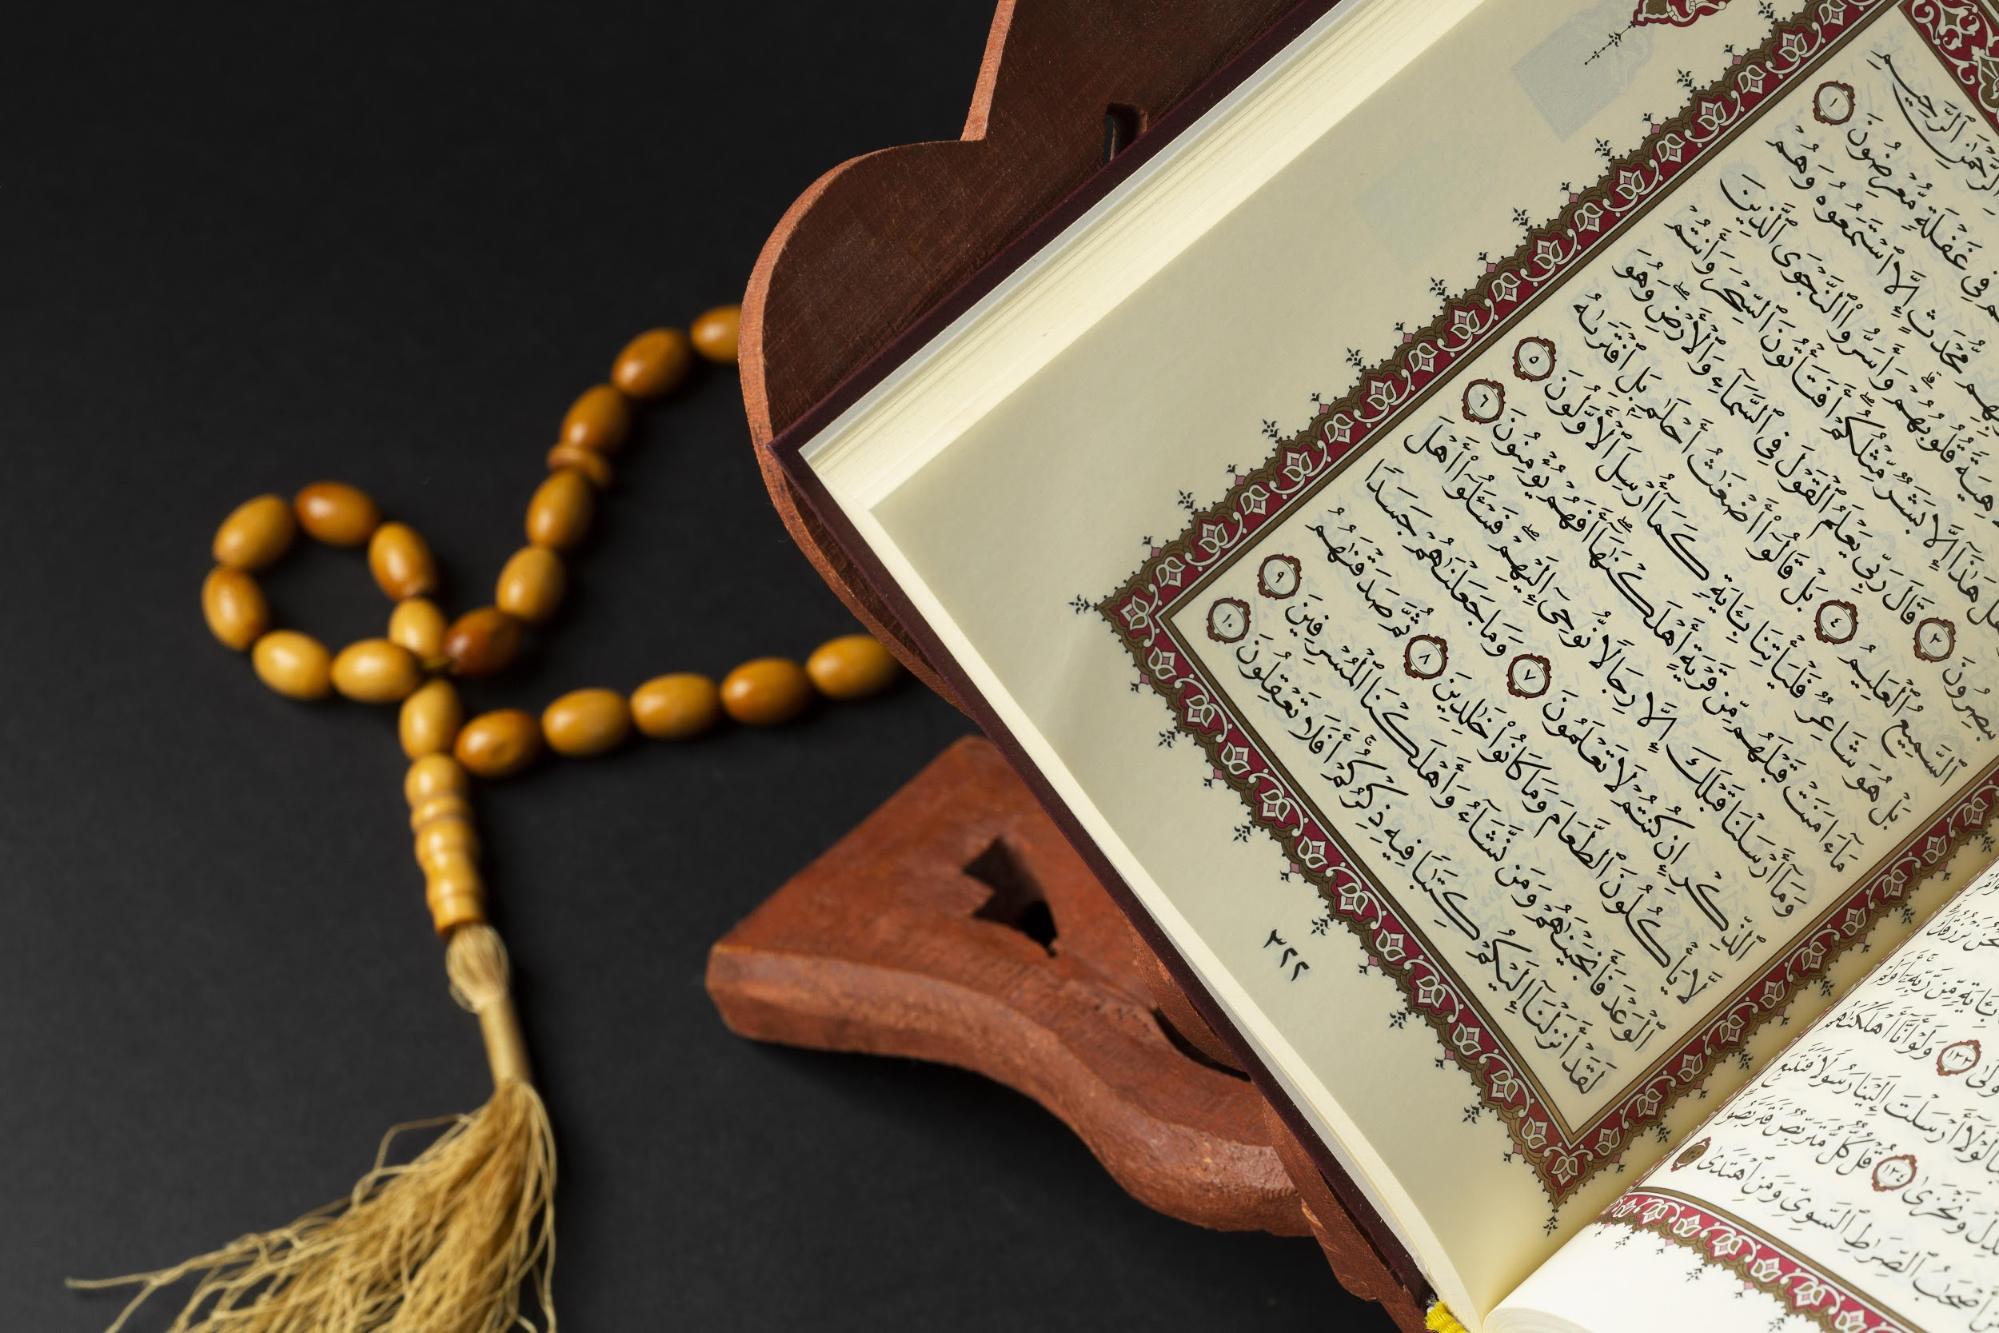 نَحْنُ نَرْزُقُكَ
بِـَٔايَةٍ مِّن رَّبِّهِۦٓ أَوَلَمْ
١٣٣ وَلَوْ أَنَّآ أَهْلَكْنَٰهُم
لَوْلَآ أَرْسَلْتَ إِلَيْنَا رَسُولًا فَنَتَّبِعَ
وَنَخْزَىٰ ١٣٤ قُلْ كُلٌّ مُّتَرَبِّصٌ فَتَرَبَّصُوا۟
أَصْحَٰبُ ٱلصِّرَٰطِ ٱلسَّوِىِّ وَمَنِ ٱهْتَدَىٰ
ٱلرَّحْمَٰنِ ٱلرَّحِيمِ
فِى غَفْلَةٍ مُّعْرِضُونَ ١
مُّحْدَثٍ إِلَّا ٱسْتَمَعُوهُ وَهُمْ
قُلُوبُهُمْ وَأَسَرُّوا۟ ٱلنَّجْوَى ٱلَّذِينَ
هَلْ هَٰذَآ إِلَّا بَشَرٌ مِّثْلُكُمْ أَفَتَأْتُونَ ٱلسِّحْرَ وَأَنتُمْ
تُبْصِرُونَ ٣ قَالَ رَبِّى يَعْلَمُ ٱلْقَوْلَ فِى ٱلسَّمَآءِ وَٱلْأَرْضِ وَهُوَ
ٱلسَّمِيعُ ٱلْعَلِيمُ ٤ بَلْ قَالُوٓا۟ أَضْغَٰثُ أَحْلَٰمٍۭ بَلِ ٱفْتَرَىٰهُ
بَلْ هُوَ شَاعِرٌ فَلْيَأْتِنَا بِـَٔايَةٍ كَمَآ أُرْسِلَ ٱلْأَوَّلُونَ ٥
مَآ ءَامَنَتْ قَبْلَهُم مِّن قَرْيَةٍ أَهْلَكْنَٰهَآ أَفَهُمْ يُؤْمِنُونَ ٦
وَمَآ أَرْسَلْنَا قَبْلَكَ إِلَّا رِجَالًا نُّوحِىٓ إِلَيْهِمْ فَسْـَٔلُوٓا۟ أَهْلَ
ٱلذِّكْرِ إِن كُنتُمْ لَا تَعْلَمُونَ ٧ وَمَا جَعَلْنَٰهُمْ جَسَدًا
لَّا يَأْكُلُونَ ٱلطَّعَامَ وَمَا كَانُوا۟ خَٰلِدِينَ ٨ ثُمَّ صَدَقْنَٰهُمُ
ٱلْوَعْدَ فَأَنجَيْنَٰهُمْ وَمَن نَّشَآءُ وَأَهْلَكْنَا ٱلْمُسْرِفِينَ ٩
لَقَدْ أَنزَلْنَآ إِلَيْكُمْ كِتَٰبًا فِيهِ ذِكْرُكُمْ أَفَلَا تَعْقِلُونَ ١٠
٣٢٢